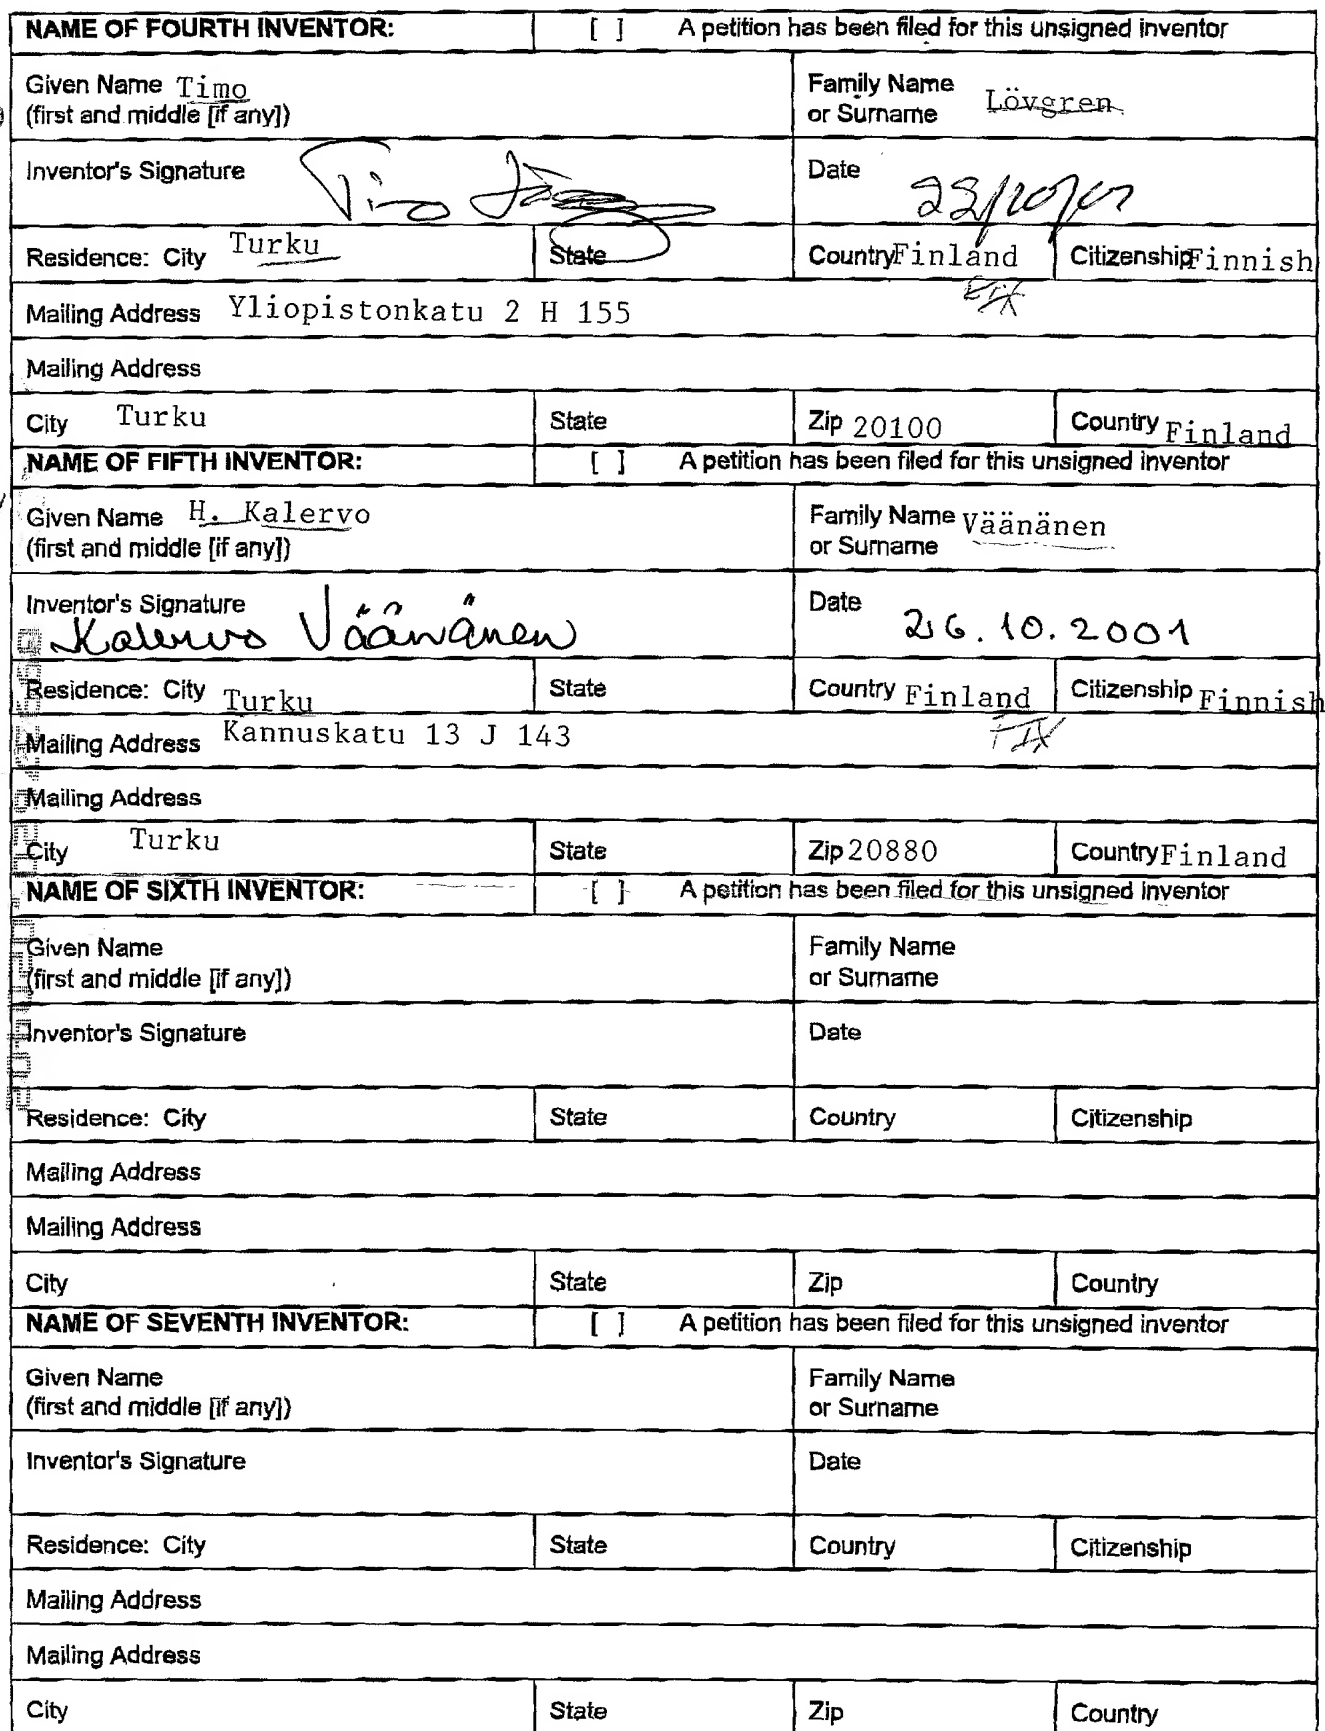 NAME OF FOURTH INVENTOR: [ ] A petition has been filed for this unsigned inventor
Given Name Timo Family Name Lövgren
(first and middle [if any]) or Surname
Inventor's Signature Timo Date
Residence: City Turku State Country Finland Citizenship Finnish
FIX
Mailing Address Yliopistonkatu 2 H 155
Mailing Address
City Turku State Zip 20100 Country Finland
NAME OF FIFTH INVENTOR: [ ] A petition has been filed for this unsigned inventor
Given Name H. Kalervo Family Name Väänänen
(first and middle [if any]) or Surname
Inventor's Signature Date 26.10.2001
Kalervo Väänänen
Residence: City Turku State Country Finland Citizenship Finnish
Mailing Address Kannuskatu 13 J 143 FIX
Mailing Address
City Turku State Zip 20880 Country Finland
NAME OF SIXTH INVENTOR: [ ] A petition has been filed for this unsigned inventor
Given Name Family Name
(first and middle [if any]) or Surname
Inventor's Signature Date
Residence: City State Country Citizenship
Mailing Address
Mailing Address
City State Zip Country
NAME OF SEVENTH INVENTOR: [ ] A petition has been filed for this unsigned inventor
Given Name Family Name
(first and middle [if any]) or Surname
Inventor's Signature Date
Residence: City State Country Citizenship
Mailing Address
Mailing Address
City State Zip Country